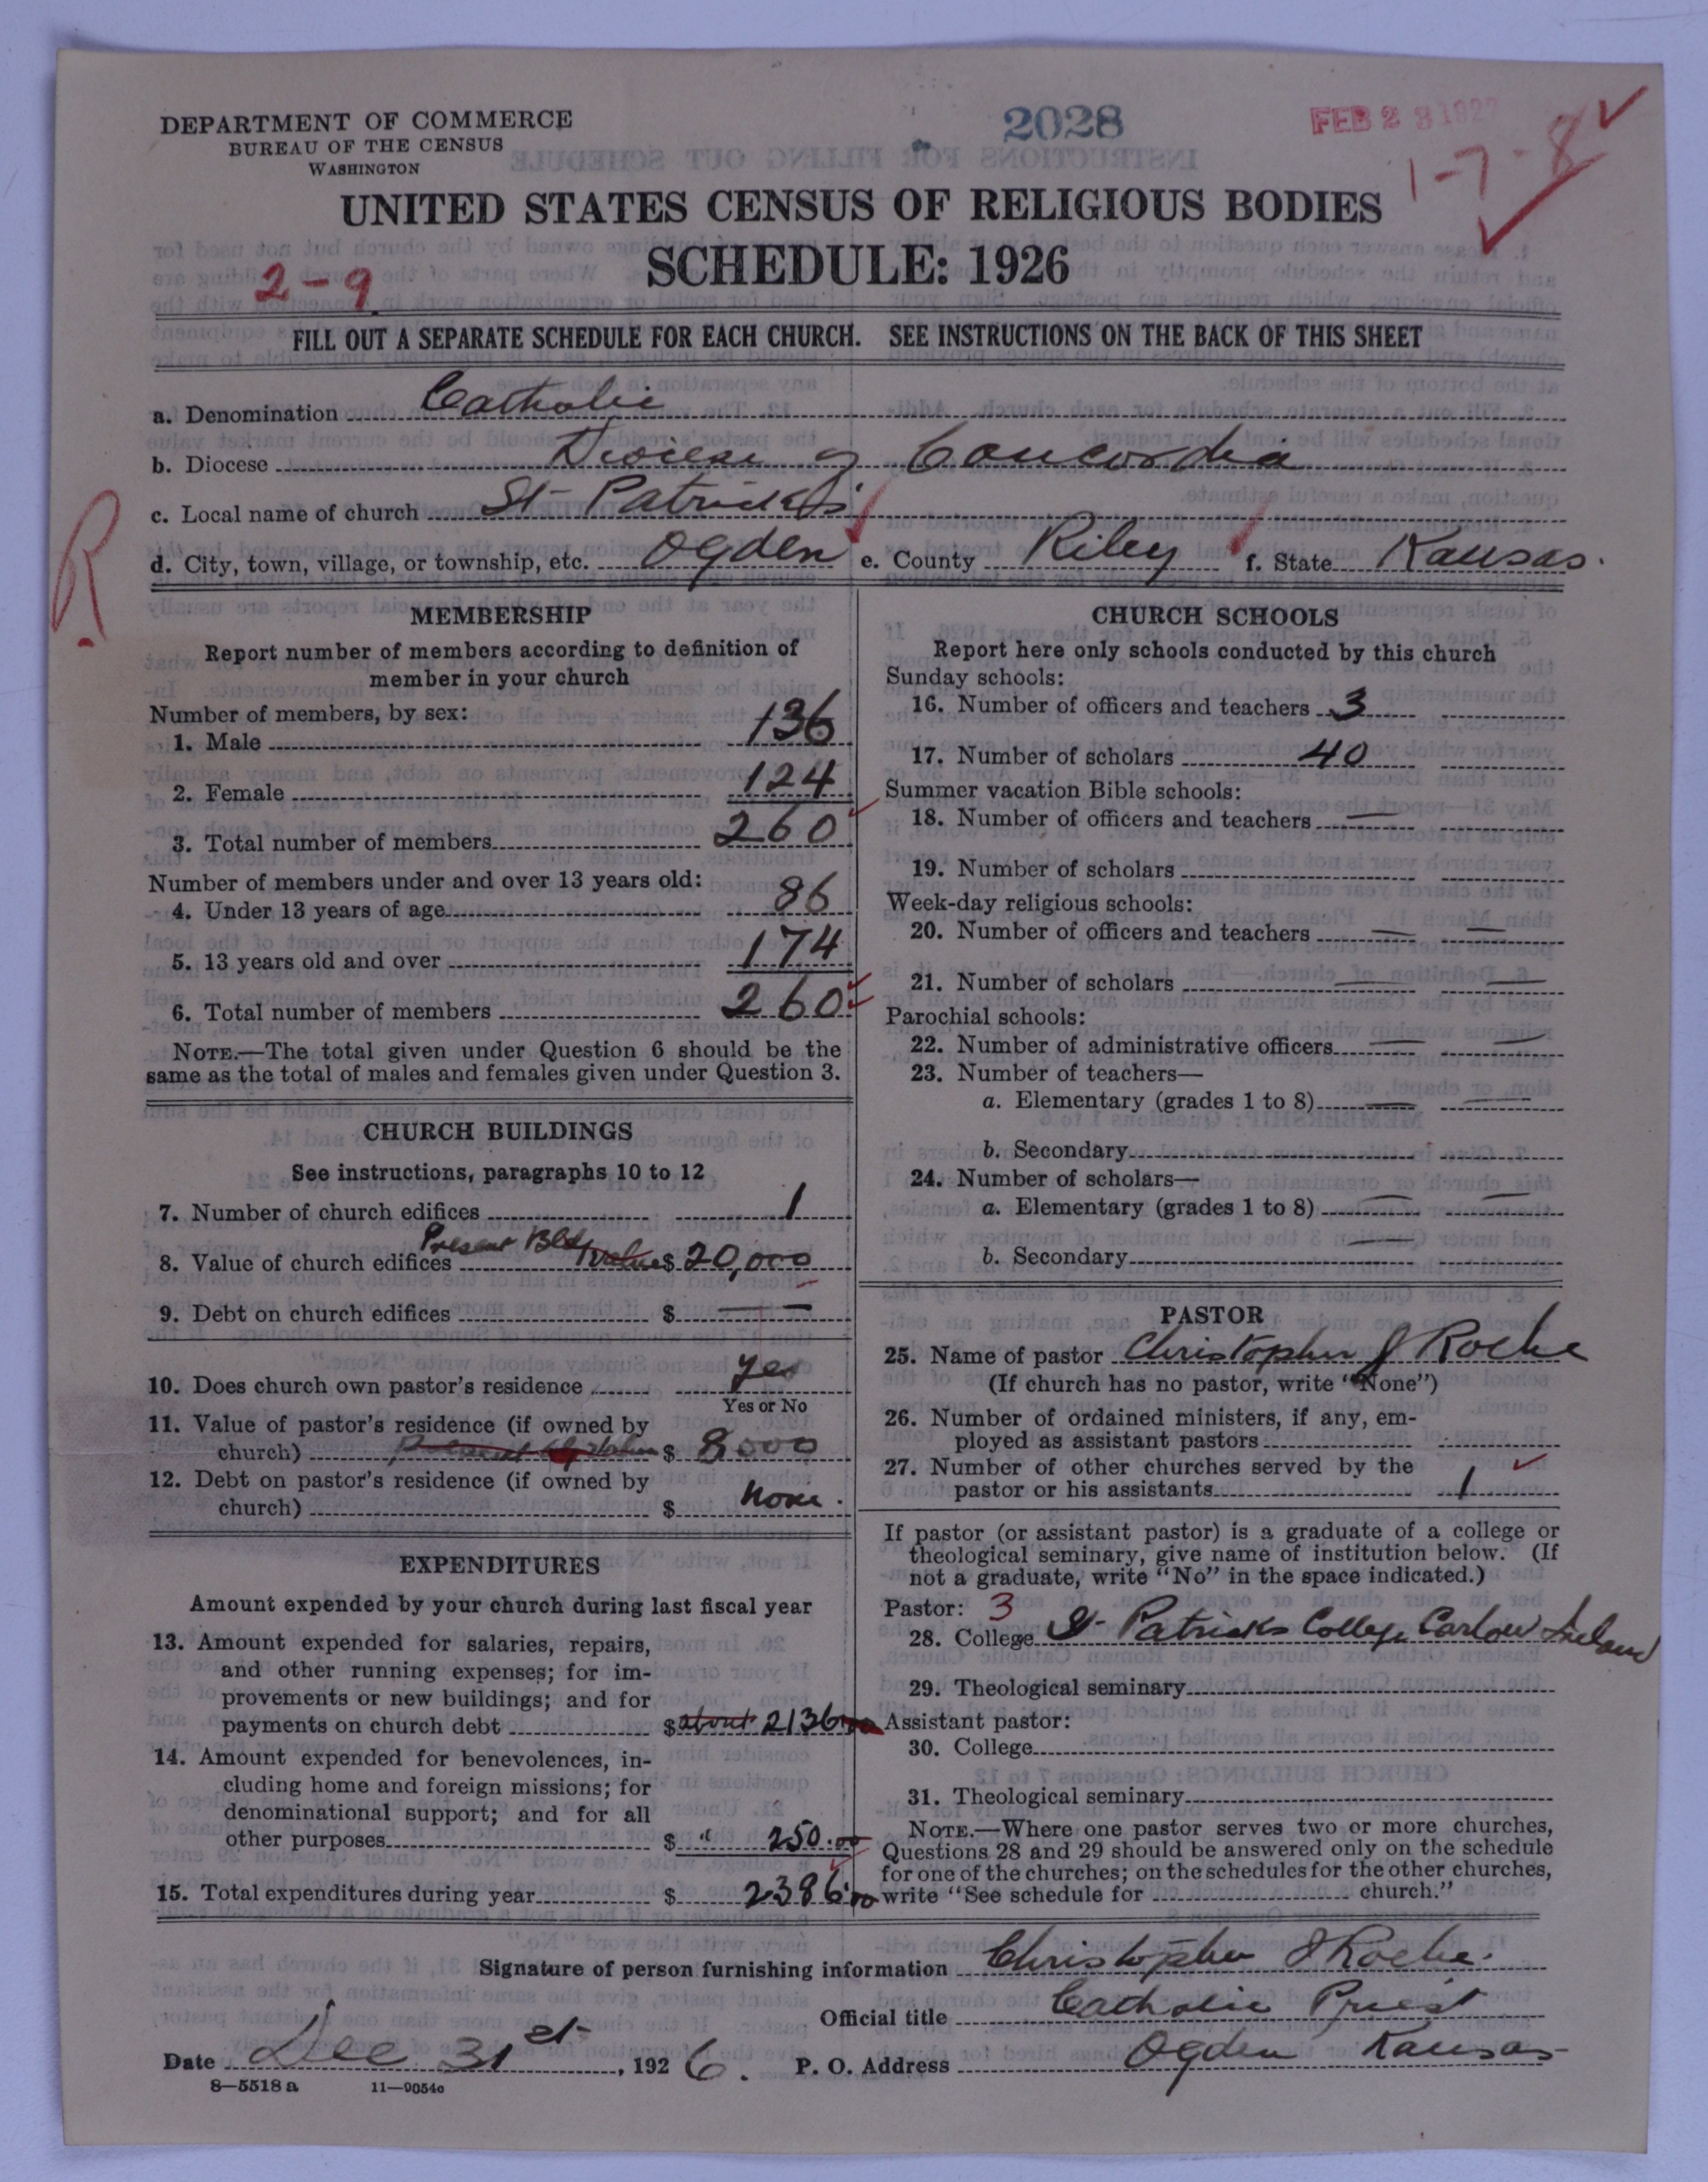 DEPARTMENT OF COMMERCE
BUREAU OF THE CENSUS
WASHINGTON
2028
FEB 23 1927
1-7-8
UNITED STATES CENSUS OF RELIGIOUS BODIES
SCHEDULE: 1926
2-9
FILL OUT A SEPARATE SCHEDULE FOR EACH CHURCH. SEE INSTRUCTIONS ON THE BACK OF THIS SHEET
a. Denomination Catholic
b. Diocese Diocese of Concordia
c. Local name of church St Patrick's
R
d. City, town, village, or township, etc. Ogden e. County Riley f. State Kansas.
MEMBERSHIP
Report number of members according to definition of
member in your church
Number of members, by sex:
1. Male 136
2. Female 124
3. Total number of members 260
Number of members under and over 13 years old:
4. Under 13 years of age 86
5. 13 years old and over 174
6. Total number of members 260
NOTE.—The total given under Question 6 should be the
same as the total of males and females given under Question 3.
CHURCH BUILDINGS
See instructions, paragraphs 10 to 12
7. Number of church edifices 1
Present Bldg
8. Value of church edifices value $ 20,000
9. Debt on church edifices $ —
10. Does church own pastor's residence yes
Yes or No
11. Value of pastor's residence (if owned by
church) $ 8000
12. Debt on pastor's residence (if owned by
church) $ None.
EXPENDITURES
Amount expended by your church during last fiscal year
13. Amount expended for salaries, repairs,
and other running expenses; for im-
provements or new buildings; and for
payments on church debt $ about 2136
14. Amount expended for benevolences, in-
cluding home and foreign missions; for
denominational support; and for all
other purposes $ " 250.00
15. Total expenditures during year $ 2386.00
CHURCH SCHOOLS
Report here only schools conducted by this church
Sunday schools:
16. Number of officers and teachers 3
17. Number of scholars 40
Summer vacation Bible schools:
18. Number of officers and teachers —
19. Number of scholars
Week-day religious schools:
20. Number of officers and teachers — —
21. Number of scholars — —
Parochial schools:
22. Number of administrative officers — —
23. Number of teachers—
a. Elementary (grades 1 to 8) — —
b. Secondary
24. Number of scholars—
a. Elementary (grades 1 to 8) — —
b. Secondary —
PASTOR
25. Name of pastor Christopher J Roche
(If church has no pastor, write "None")
26. Number of ordained ministers, if any, em-
ployed as assistant pastors
27. Number of other churches served by the
pastor or his assistants 1
If pastor (or assistant pastor) is a graduate of a college or
theological seminary, give name of institution below. (If
not a graduate, write "No" in the space indicated.)
Pastor: 3
28. College St Patricks College Carlow Ireland
29. Theological seminary
Assistant pastor:
30. College
31. Theological seminary
NOTE.—Where one pastor serves two or more churches,
Questions 28 and 29 should be answered only on the schedule
for one of the churches; on the schedules for the other churches,
write "See schedule for church."
Signature of person furnishing information Christopher J Roche.
Official title Catholic Priest
Date Dec 31st, 1926. P. O. Address Ogden Kansas
8—5518 a 11—9054a